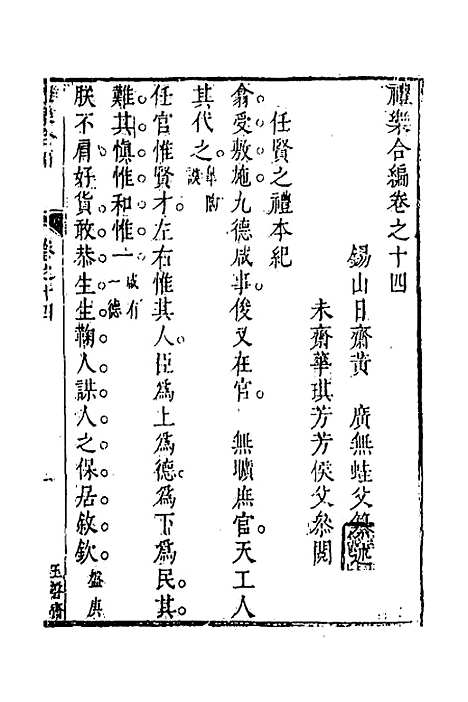 禮樂合編卷之十四
錫山日齋黃　廣無蛙父
未齋華琪芳芳侯父叅閱
任賢之禮本紀
翕受敷施九德咸事俊乂在官　無曠庶官天工人
其代之臯陶謨
任官惟賢才左右惟其人臣爲上爲德爲下爲民其
難其愼惟和惟一咸有一德
朕不肩好貨敢恭生生鞠人謀人之保居敘欽盤庚
卷之十四
一